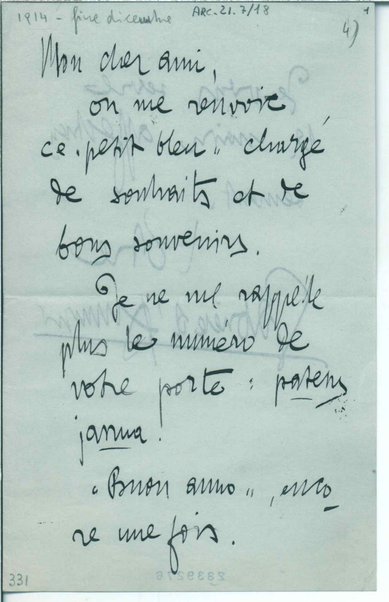 1914 - fine dicembre
ARC. 21. 7/18
1
4)
Mon cher ami,
on me renvoie
ce „petit bleu„ chargé
de souhaits et de
bons souvenirs.
Je ne me rappelle
plus le numéro de
votre porte : patens
janua !
„Buon anno„, enco-
re une fois.
331
2839276